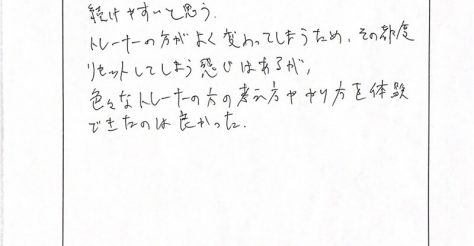 続けやすいと思う.
トレーナーの方がよく変わってしまうため、その都度
リセットしてしまう感じはあるが、
色々なトレーナーの方の考え方ややり方を体験
できたのは良かった.